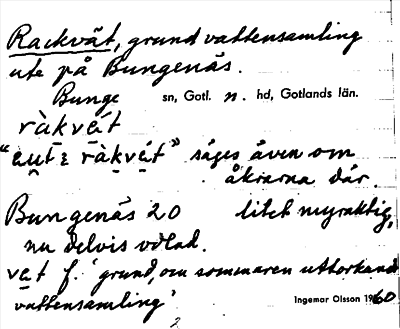 Rackvät, grund vattensamling
ute på Bungenäs.
Bunge sn, Gotl. n. hd, Gotlands län.
ràkvä́t
"äut i ràkvä́t" säges även om
åkrarna där.
Bungenäs 20 litet myraktig,
nu delvis odlad.
vät f. 'grund, om sommaren uttorkand
vattensamling'
Ingemar Olsson 1960
2